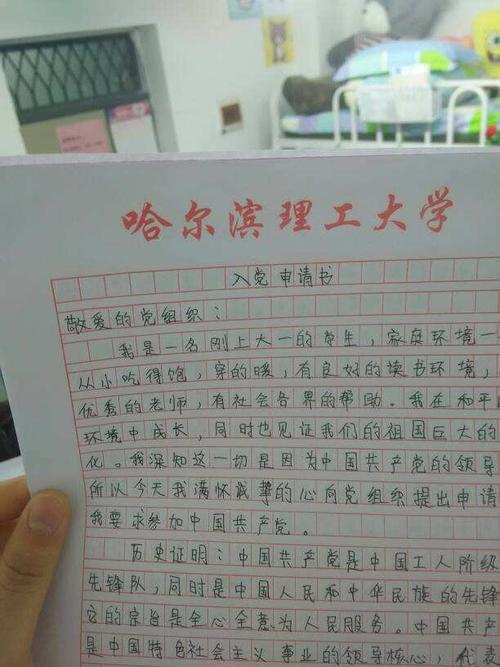 哈尔滨理工大学
入党申请书
敬爱的党组织：
我是一名刚上大一的学生，家庭环境一
从小吃得饱，穿的暖，有良好的读书环境，
优秀的老师，有社会各界的帮助。我在和平的
环境中成长，同时也见证我们的祖国巨大的
化。我深知这一切是因为中国共产党的领导
所以今天我满怀诚挚的心向党组织提出申请
我要求参加中国共产党。
历史证明：中国共产党是中国工人阶级
先锋队，同时是中国人民和中华民族的先锋
它的宗旨是全心全意为人民服务。中国共产
是中国特色社会主义事业的领导核心，代表